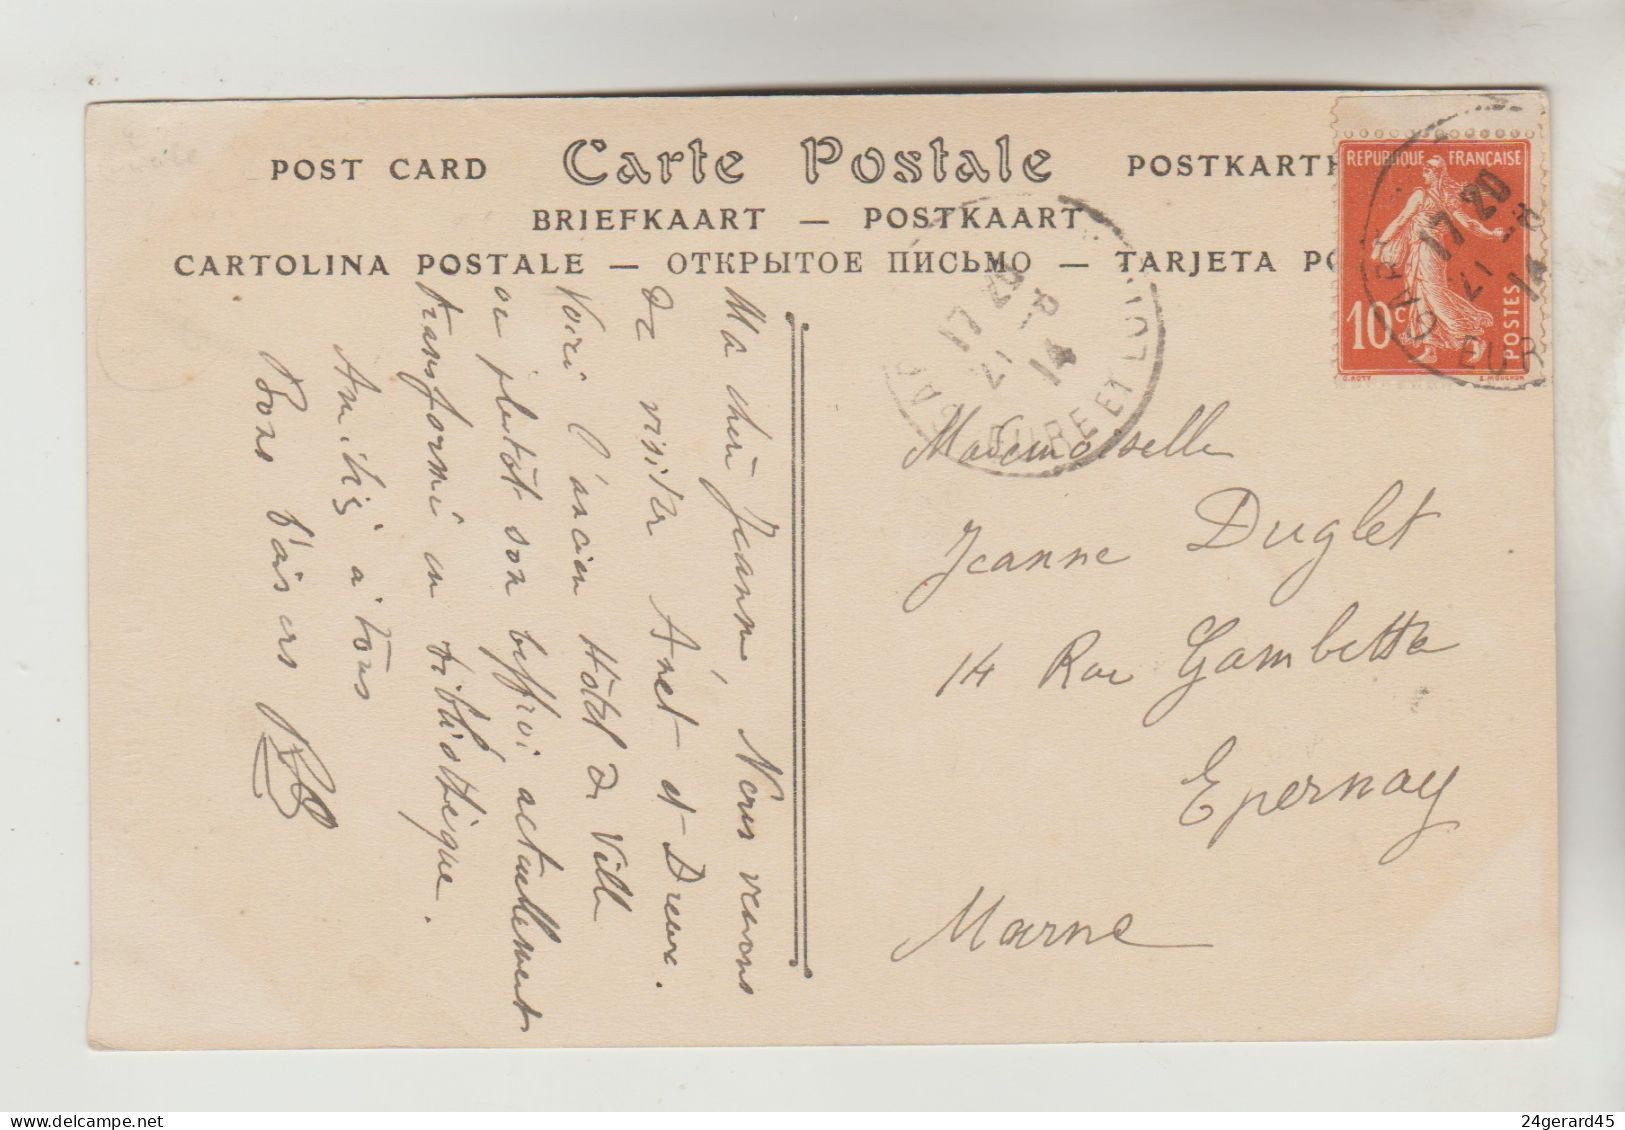 POST CARD Carte Postale POSTKARTE
BRIEFKAART — POSTKAART
CARTOLINA POSTALE — ОТКРЫТОЕ ПИСЬМО — TARJETA PO
Ma chère Jeanne, Nous venons
de visiter Anet et Dreux.
Voici l'ancien Hôtel de Ville
ou plutôt son beffroi actuellement
transformé en bibliothèque.
Amitiés à tous
Bons baisers
REPUBLIQUE FRANÇAISE
10c
POSTES
17 20
21 -8
14
GARE
EUR
17 20
21 -8
14
GARE
EURE ET LOIR
Mademoiselle
Jeanne Duglet
14 Rue Gambetta
Epernay
Marne
24gerard45